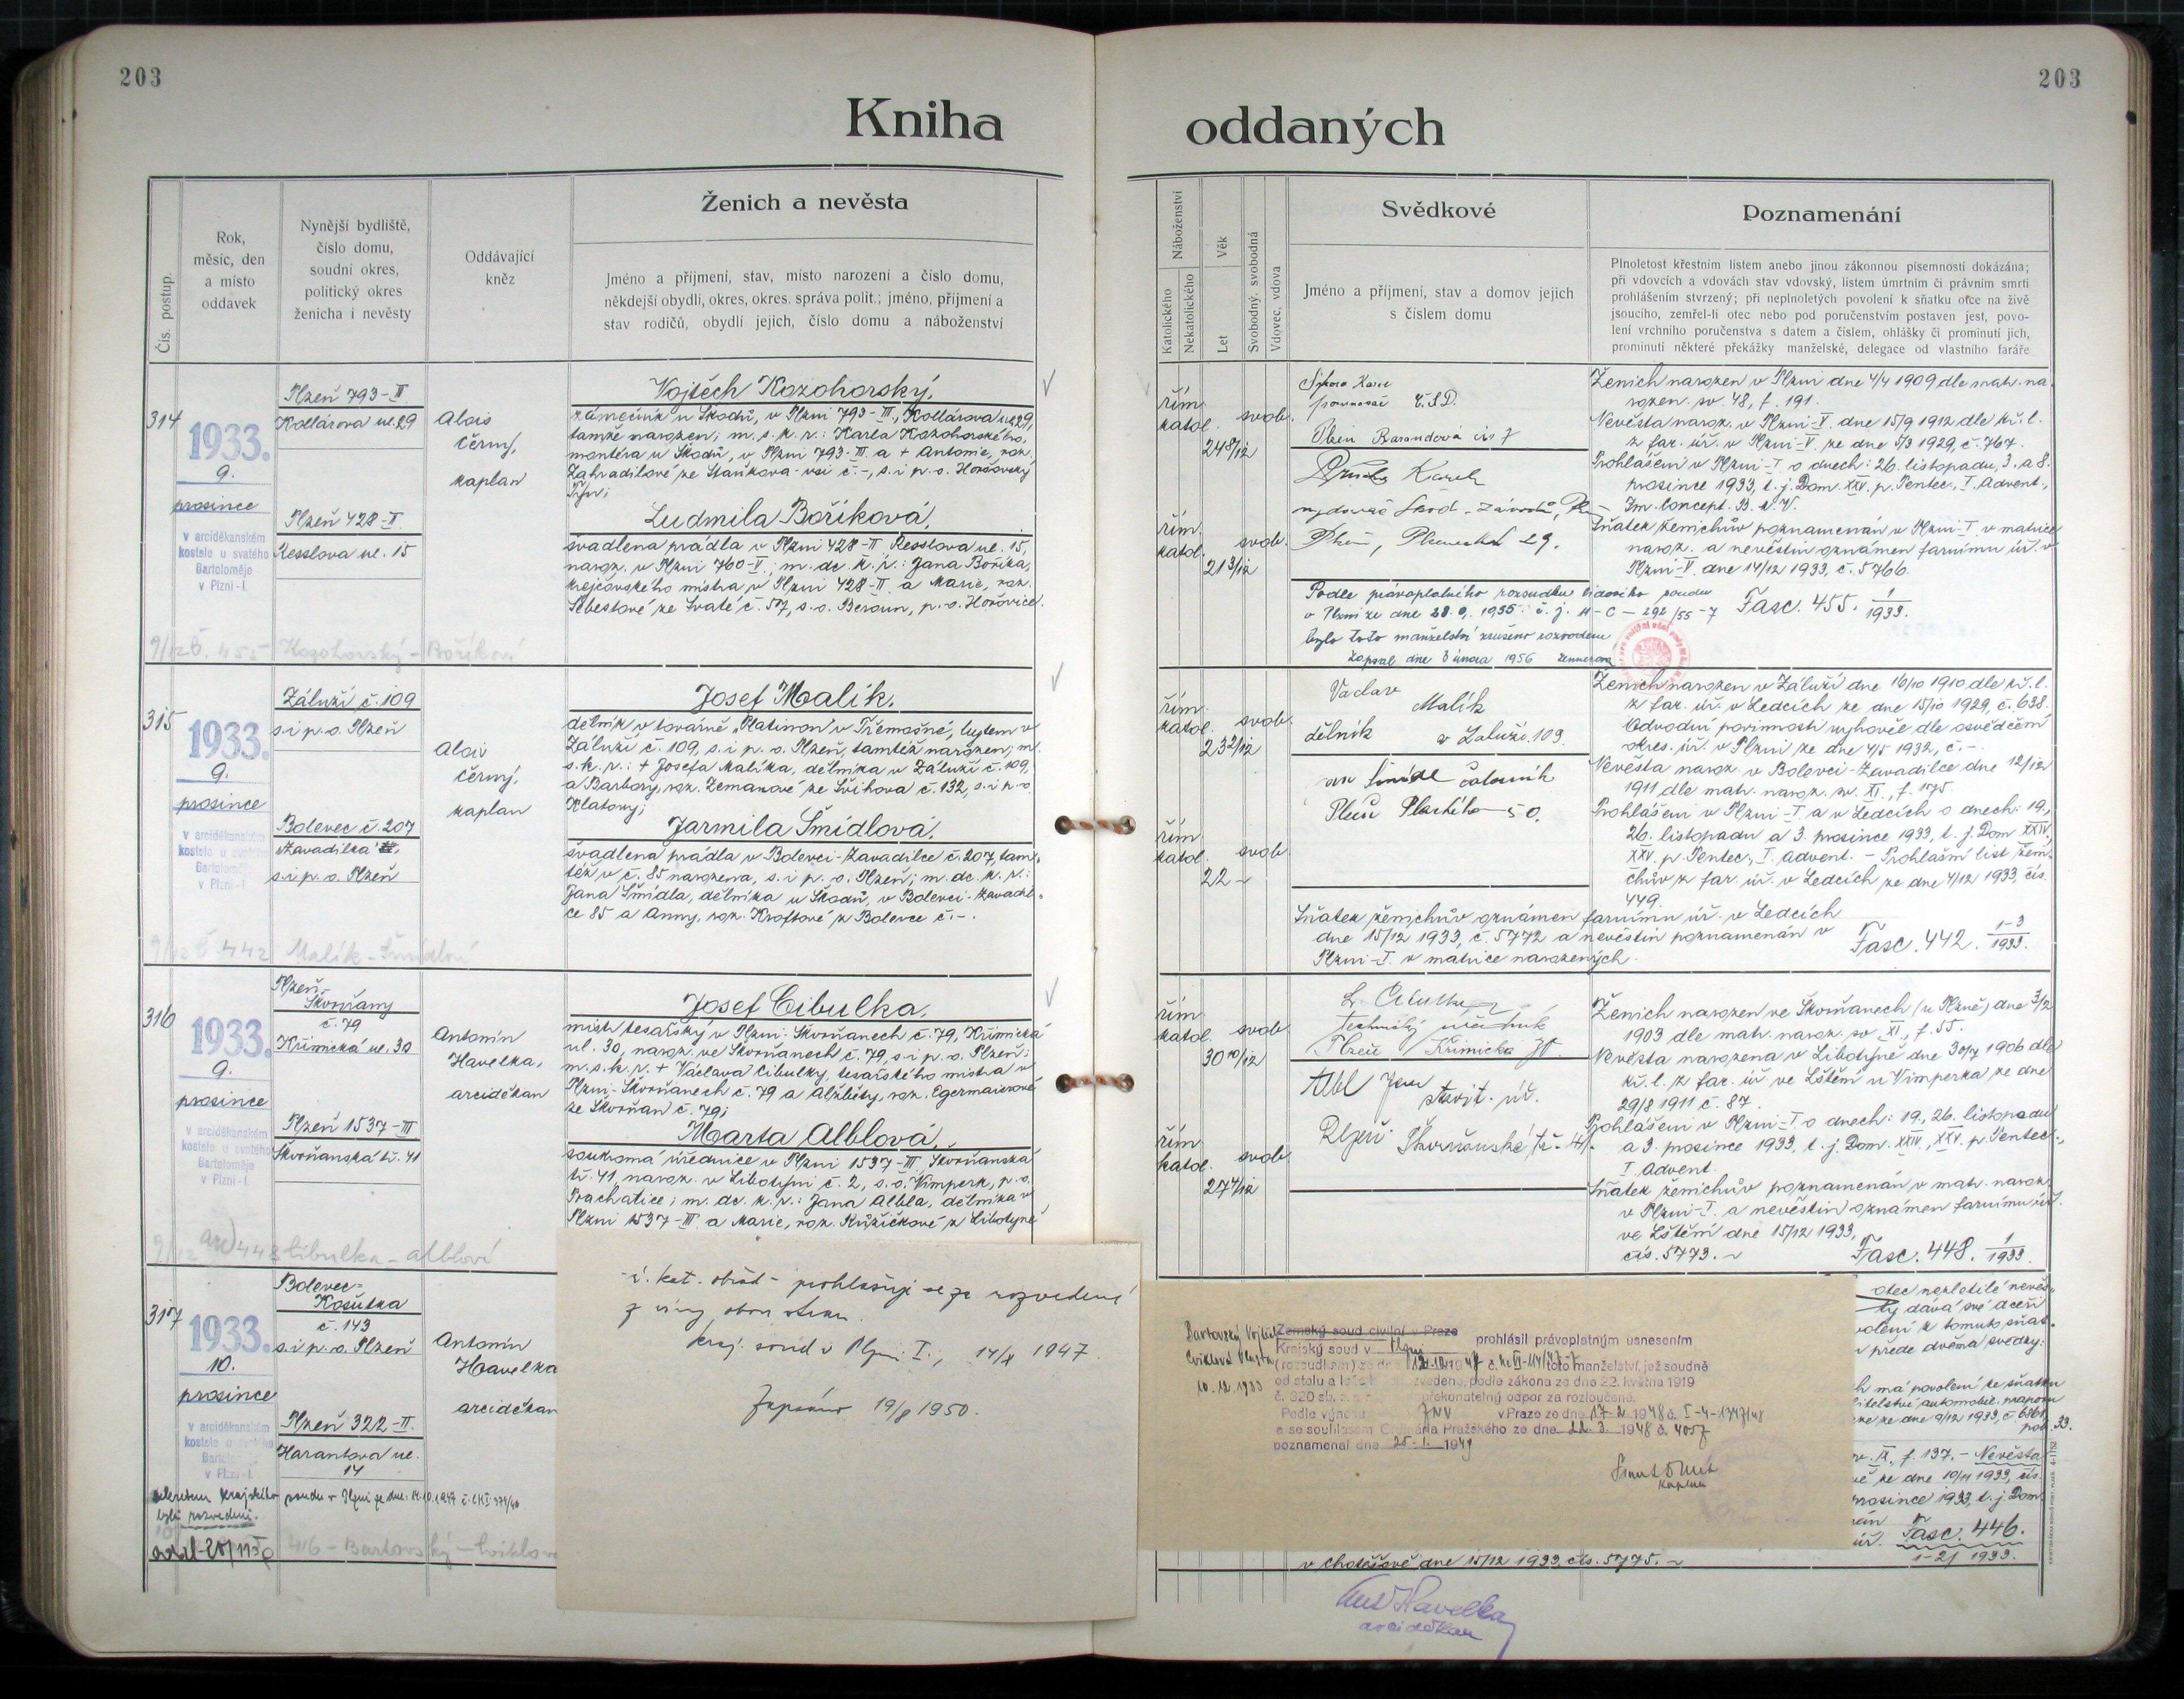 203
203
Kniha
oddaných
Čís. postup.
Rok,
měsíc, den
a místo
oddavek
Nynější bydliště,
číslo domu,
soudní okres,
politický okres
ženicha i nevěsty
Oddávající
kněz
Ženich a nevěsta
Jméno a příjmení, stav, místo narození a číslo domu,
někdejší obydlí, okres, okres. správa polit.; jméno, příjmení a
stav rodičů, obydlí jejich, číslo domu a náboženství
314
1933.
9.
prosince
v arciděkanském
kostele u svatého
Bartoloměje
v Plzni-I.
Plzeň 793-III
Kollárova ul. 29
Plzeň 428-II
Resslova ul. 15
Alois
Černý,
kaplan
Vojtěch Kozohorský,
zámečník u Škodů, v Plzni 793-III, Kollárova ul. 29,
tamže narozen; m. s. k. r.: Karla Kozohorského,
montéra u Škodů, v Plzni 793-III a + Antonie, roz.
Zahradilové ze Staňkova-vsi č.-, s. i p. o. Horšovský
Týn;
Ludmila Boříková,
švadlena prádla v Plzni 428-II Resslova ul. 15,
naroz. v Plzni 760-V; m. dc. k. r.: Jana Boříka,
krejčovského mistra v Plzni 428-II a Marie, roz.
Šebestové ze Svaté č. 57, s. o. Beroun, p. o. Hořovice.
9/12 č. 455 Kozohorský - Boříková
315
1933.
9.
prosince
v arciděkanském
kostele u svatého
Bartoloměje
v Plzni-I.
Záluží č. 109
s. i p. o. Plzeň
Bolevec č. 207
Zavadilka
s. i p. o. Plzeň
Alois
Černý,
kaplan
Josef Malík,
dělník v továrně „Platinon" v Třemošné, bytem v
Záluží č. 109, s. i p. o. Plzeň, tamtéž narozen; m.
s. k. r.: + Josefa Malíka, dělníka v Záluží č. 109,
a Barbory, roz. Zemanové ze Švihova č. 132, s. i p. o.
Klatovy;
Jarmila Šmídlová,
švadlena prádla v Bolevci-Zavadilce č. 207, tam-
též v č. 85 narozena, s. i p. o. Plzeň; m. dc. k. r.:
Jana Šmídla, dělníka u Škodů, v Bolevci-Zavadil-
ce 85 a Anny, roz. Kroftové z Bolevce č.-.
9/12 č. 442 Malík - Šmídlová
316
1933.
9.
prosince
v arciděkanském
kostele u svatého
Bartoloměje
v Plzni-I.
Plzeň-
Skvrňany
č. 79
Křimická ul. 30
Plzeň 1537-III
Skvrňanská tř. 41
Antonín
Havelka,
arciděkan
Josef Cibulka,
mistr tesařský v Plzni-Skvrňanech č. 79, Křimická
ul. 30, naroz. ve Skvrňanech č. 79, s. i p. o. Plzeň;
m. s. k. r. + Václava Cibulky, tesařského mistra v
Plzni-Skvrňanech č. 79 a Alžběty, roz. Egermaierové
ze Skvrňan č. 79;
Marta Alblová,
soukromá úřednice v Plzni 1537-III, Skvrňanská
tř. 41, naroz. v Libotyni č. 2, s. o. Vimperk, p. o.
Prachatice; m. dc. k. r.: Jana Albla, dělníka v
Plzni 1537-III a Marie, roz. Růžičkové z Libotyně
9/12 448 Cibulka - Alblová
317
1933.
10.
prosince
v arciděkanském
kostele u svatého
v Plzni-I.
Bolevec-
Košutka
č. 143
s. i p. o. Plzeň
Plzeň 322-II.
Harantova ul.
14
Antonín
Havelka
arciděkan
krajského soudu v Plzni ze dne: 14.10.1947
byli rozvedeni.
446 - Bartovský - Cviklová
ř. kat. obřad - prohlašuji se za rozvedené
z viny obou stran.
Kraj. soud v Plzni I., 14/X 1947.
Zapsáno 19/8 1950.
Náboženství
Katolického
Nekatolického
Věk
Let
Svobodný, svobodná
Vdovec, vdova
Svědkové
Jméno a příjmení, stav a domov jejich
s číslem domu
Poznamenání
Plnoletost křestním listem anebo jinou zákonnou písemností dokázána;
při vdovcích a vdovách stav vdovský, listem úmrtním či právním smrti
prohlášením stvrzený; při neplnoletých povolení k sňatku otce na živě
jsoucího, zemřel-li otec nebo pod poručenstvím postaven jest, povo-
lení vrchního poručenstva s datem a číslem, ohlášky či prominutí jich,
prominutí některé překážky manželské, delegace od vlastního faráře
řím.
katol.
svob.
24 8/12
řím.
katol.
svob.
21 3/12
Karel
Č.S.D.
Plzeň Barandova čís 7
Karel
Škod. závodů,
Plzeň, 29.
Ženich narozen v Plzni dne 4/4 1909 dle matr. na-
rozen. sv. 48, f. 191.
Nevěsta naroz. v Plzni-V. dne 15/9 1912 dle kř. l.
z far. úř. v Plzni-V ze dne 5/3 1929, č. 767.
Prohlášeni v Plzni-I o dnech: 26. listopadu, 3. a 8.
prosince 1933, t. j. Dom. XXV. p. Pentec., I. Advent.,
Im. Concept. B. M. V.
Sňatek ženichův poznamenán v Plzni-I v matrice
naroz. a nevěstin oznámen farnímu úř. v
Plzni-V dne 14/12 1933, č. 5766.
Fasc. 455. 1/1933.
Podle právoplatného rozsudku lidového soudu
v Plzni ze dne 28. 9. 1955 č. j. 4-C-292/55-7
bylo toto manželství zrušeno rozvodem
Zapsal dne 3 února 1956
řím.
katol.
svob.
23 2/12
řím.
katol.
svob.
22 -
Václav
Malík
dělník v Záluží. 109.
Jan Šmídl
Plzeň 50.
Ženich narozen v Záluží dne 16/10 1910 dle kř. l.
z far. úř. v Ledcích ze dne 15/10 1929, č. 638.
Odvodní povinnosti vyhověl dle osvědčení
okres. úř. v Plzni ze dne 4/5 1932, č. -.
Nevěsta naroz. v Bolevci-Zavadilce dne 12/12
1911 dle matr. naroz. sv. XI., f. 175.
Prohlášeni v Plzni-I. a v Ledcích o dnech: 19.,
26. listopadu a 3. prosince 1933, t. j. Dom XXIV.,
XXV. p. Pentec., I. Advent. - Prohlašní list ženi-
chův z far. úř. v Ledcích ze dne 4/12 1933, čís.
449.
Sňatek ženichův oznámen farnímu úř. v Ledcích
dne 15/12 1933, č. 5772 a nevěstin poznamenán v
Plzni-I. v matrice narozených.
Fasc. 442. 1-3/1933.
řím.
katol.
svob.
30 10/12
řím.
katol.
svob.
27 4/12
Cibulka
Technický úředník
Plzeň Křimická 30.
Albl Jan
stavit. úř.
Plzeň Skvrňanská tř. 41.
Ženich narozen ve Skvrňanech (u Plzně) dne 3/2
1903 dle matr. naroz. sv. XI., f. 55.
Nevěsta narozena v Libotyně dne 30/7 1906 dle
kř. l. z far. úř. ve Lštění u Vimperka ze dne
29/8 1911 č. 87.
Prohlášeni v Plzni-I. o dnech: 19., 26. listopadu
a 3. prosince 1933, t. j. Dom. XXIV., XXV. p. Pentec.,
I. Advent.
Sňatek ženichův poznamenán v matr. naroz.
v Plzni-I. a nevěstin oznámen farnímu úř.
ve Lštění dne 15/12 1933,
čís. 5773.
Fasc. 448. 1/1933
Bartovský Vojtěch
Cviklová Vlasta
10. 12. 1933
Zemský soud civilní v Praze
Krajský soud v Plzni prohlásil právoplatným usnesením
toto manželství, jež soudně
od stolu a lože rozvedeno, podle zákona ze dne 22. května 1919
č. 320 sb. nepřekonatelný odpor za rozloučené.
Podle výnosu JNV v Praze ze dne 17-2-1948 č. I-4-1747/48
a se souhlasem Ordinária Pražského ze dne 22. 3. 1948 č. 4057
poznamenal dne 25. 1. 1949
kaplan
otec nezletilé nevěs-
ty dává své dceři
volení k tomuto sňat-
přede dvěma svědky:
má povolení ke sňatku
ze dne 9/12 1933, č. 6861
IX, f. 137. - Nevěsta
ze dne 10/11 1933, čís.
prosince 1933, t. j. Dom.
Fasc. 446.
1-2/ 1933.
v Chotěšově dne 15/12 1933 čís. 5775.
Ant Havelka
arciděkan